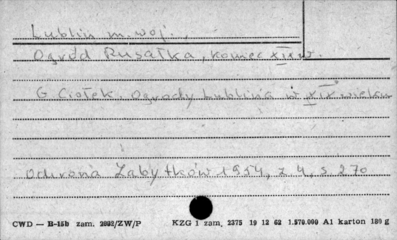 Lublin m. woj.,
Ogród Rusałka, koniec XIX w.
G. Ciołek, Ogrody Lublina w XIX wieku
Ochrona Zabytków 1954, z 4, s 270
CWD — B-15b zam. 2002/ZW/P KZG 1 zam, 2375 19 12 62 1.570.000 A1 karton 180 g